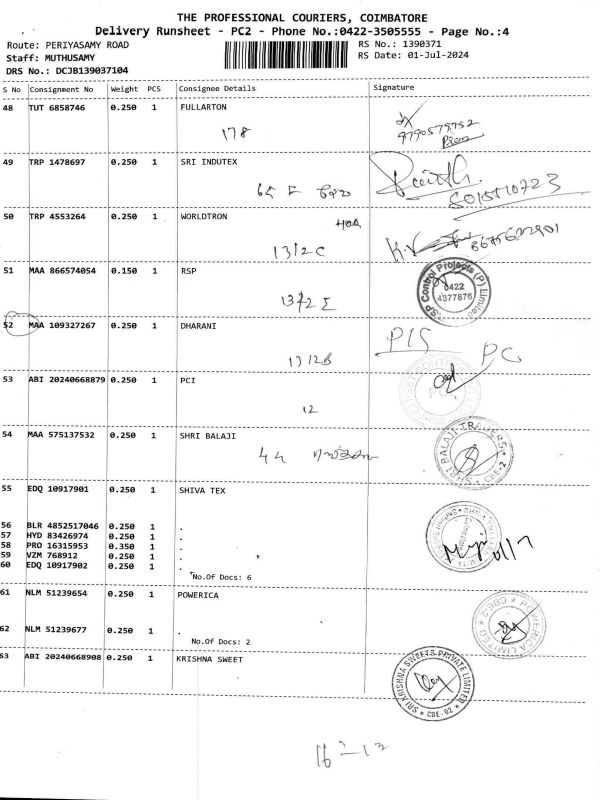 THE PROFESSIONAL COURIERS, COIMBATORE
Delivery Runsheet - PC2 - Phone No.:0422-3505555 - Page No.:4
Route: PERIYASAMY ROAD RS No.: 1390371
Staff: MUTHUSAMY RS Date: 01-Jul-2024
DRS No.: DCJB139037104
S No Consignment No Weight PCS Consignee Details Signature
48 TUT 6858746 0.250 1 FULLARTON
178
9790579752
49 TRP 1478697 0.250 1 SRI INDUTEX
65 E
8015110723
50 TRP 4553264 0.250 1 WORLDTRON
13/2C
51 MAA 866574054 0.150 1 RSP
13/2 E
RSP Control Projects (P) Limited
0422
4377876
52 MAA 109327267 0.250 1 DHARANI
13/2B
53 ABI 20240668879 0.250 1 PCI
12
54 MAA 575137532 0.250 1 SHRI BALAJI
SHRI BALAJI TRADERS * CBE-2
55 EDQ 10917901 0.250 1 SHIVA TEX
56 BLR 4852517046 0.250 1 .
57 HYD 83426974 0.250 1 .
58 PRO 16315953 0.350 1 .
59 VZM 768912 0.250 1 .
60 EDQ 10917902 0.250 1 .
No.Of Docs: 6
61 NLM 51239654 0.250 1 POWERICA
62 NLM 51239677 0.250 1 .
No.Of Docs: 2
POWERICA LIMITED * CBE-2
63 ABI 20240668908 0.250 1 KRISHNA SWEET
SRI KRISHNA SWEETS PRIVATE LIMITED * CBE-02 *